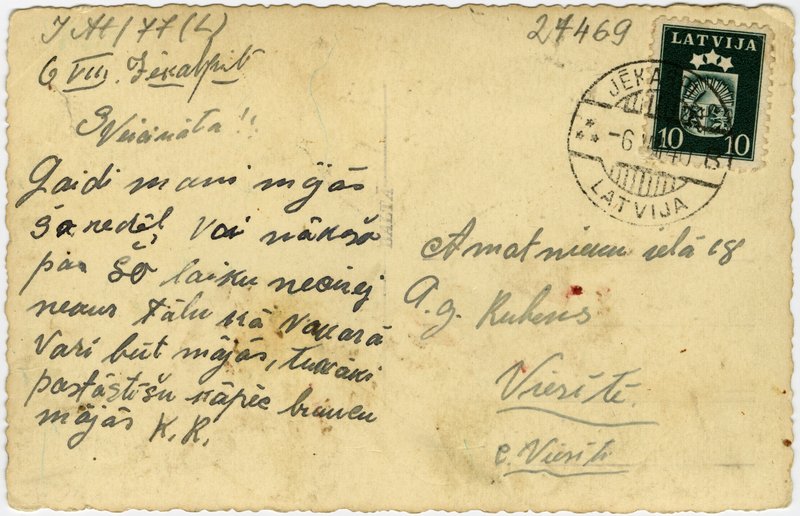 J At/77(L)
21469
6 VIII. Jēkabpilī
Sveicināta!!
Gaidi mani mājās
šo nedēļ, Vai nākošo
pa šo laiku neaizej
tālu kā vakarā
Vari būt mājās, tuvāki
pastāstīšu kāpēc braucu
mājās K.K.
LATVIJA
10 10
JĒKA
-6
LATVIJA
BALTA
Amatnieku ielā 18
A. g. Rubenis
Viesītē.
c. Viesīti